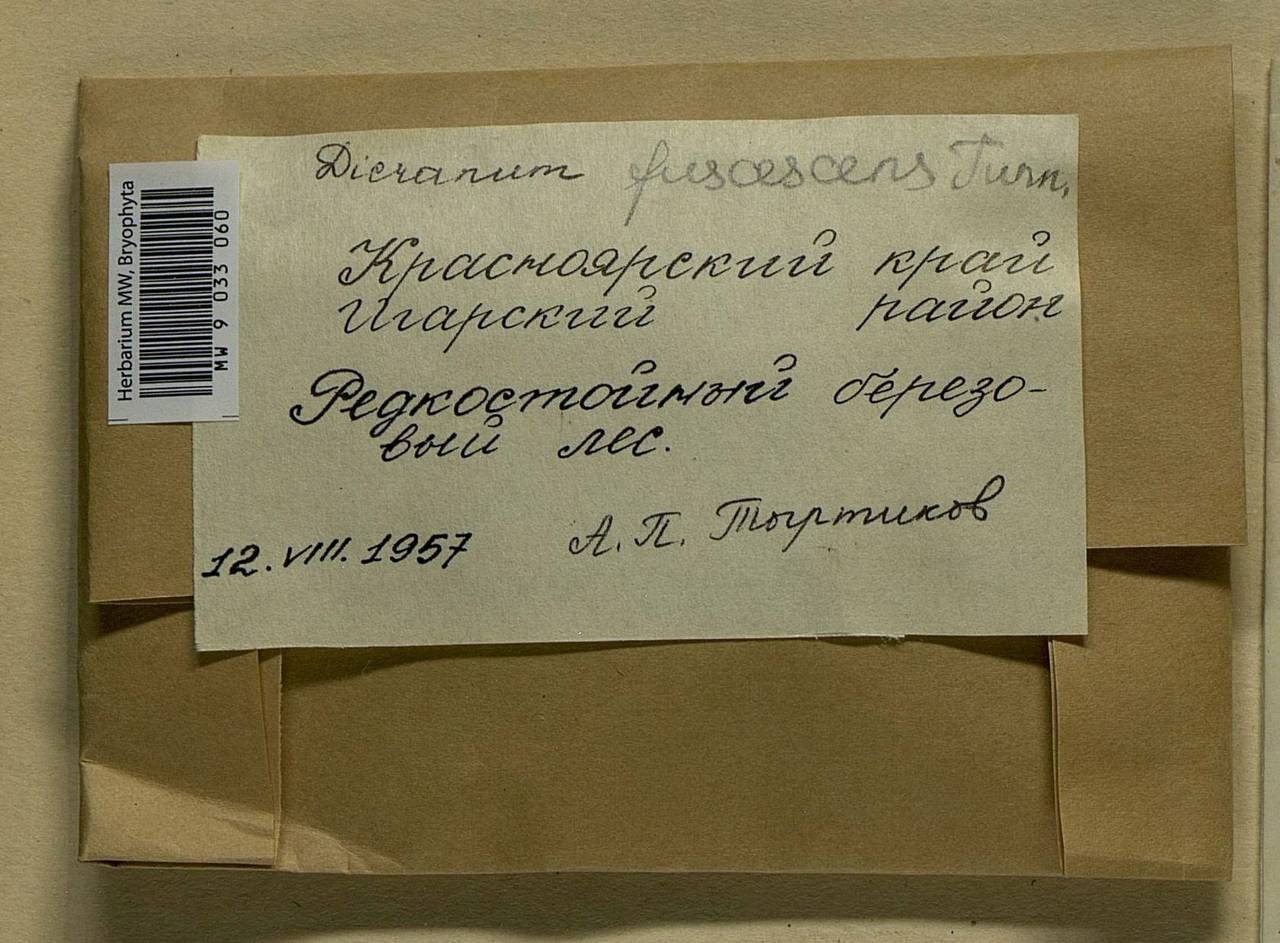 Herbarium MW, Bryophyta
MW 9 033 060
Dicranum fuscescens Turn.
Красноярский край
Игарский район
Редкостойный березо-
вый лес.
12.VIII.1957 А.П. Тыртиков